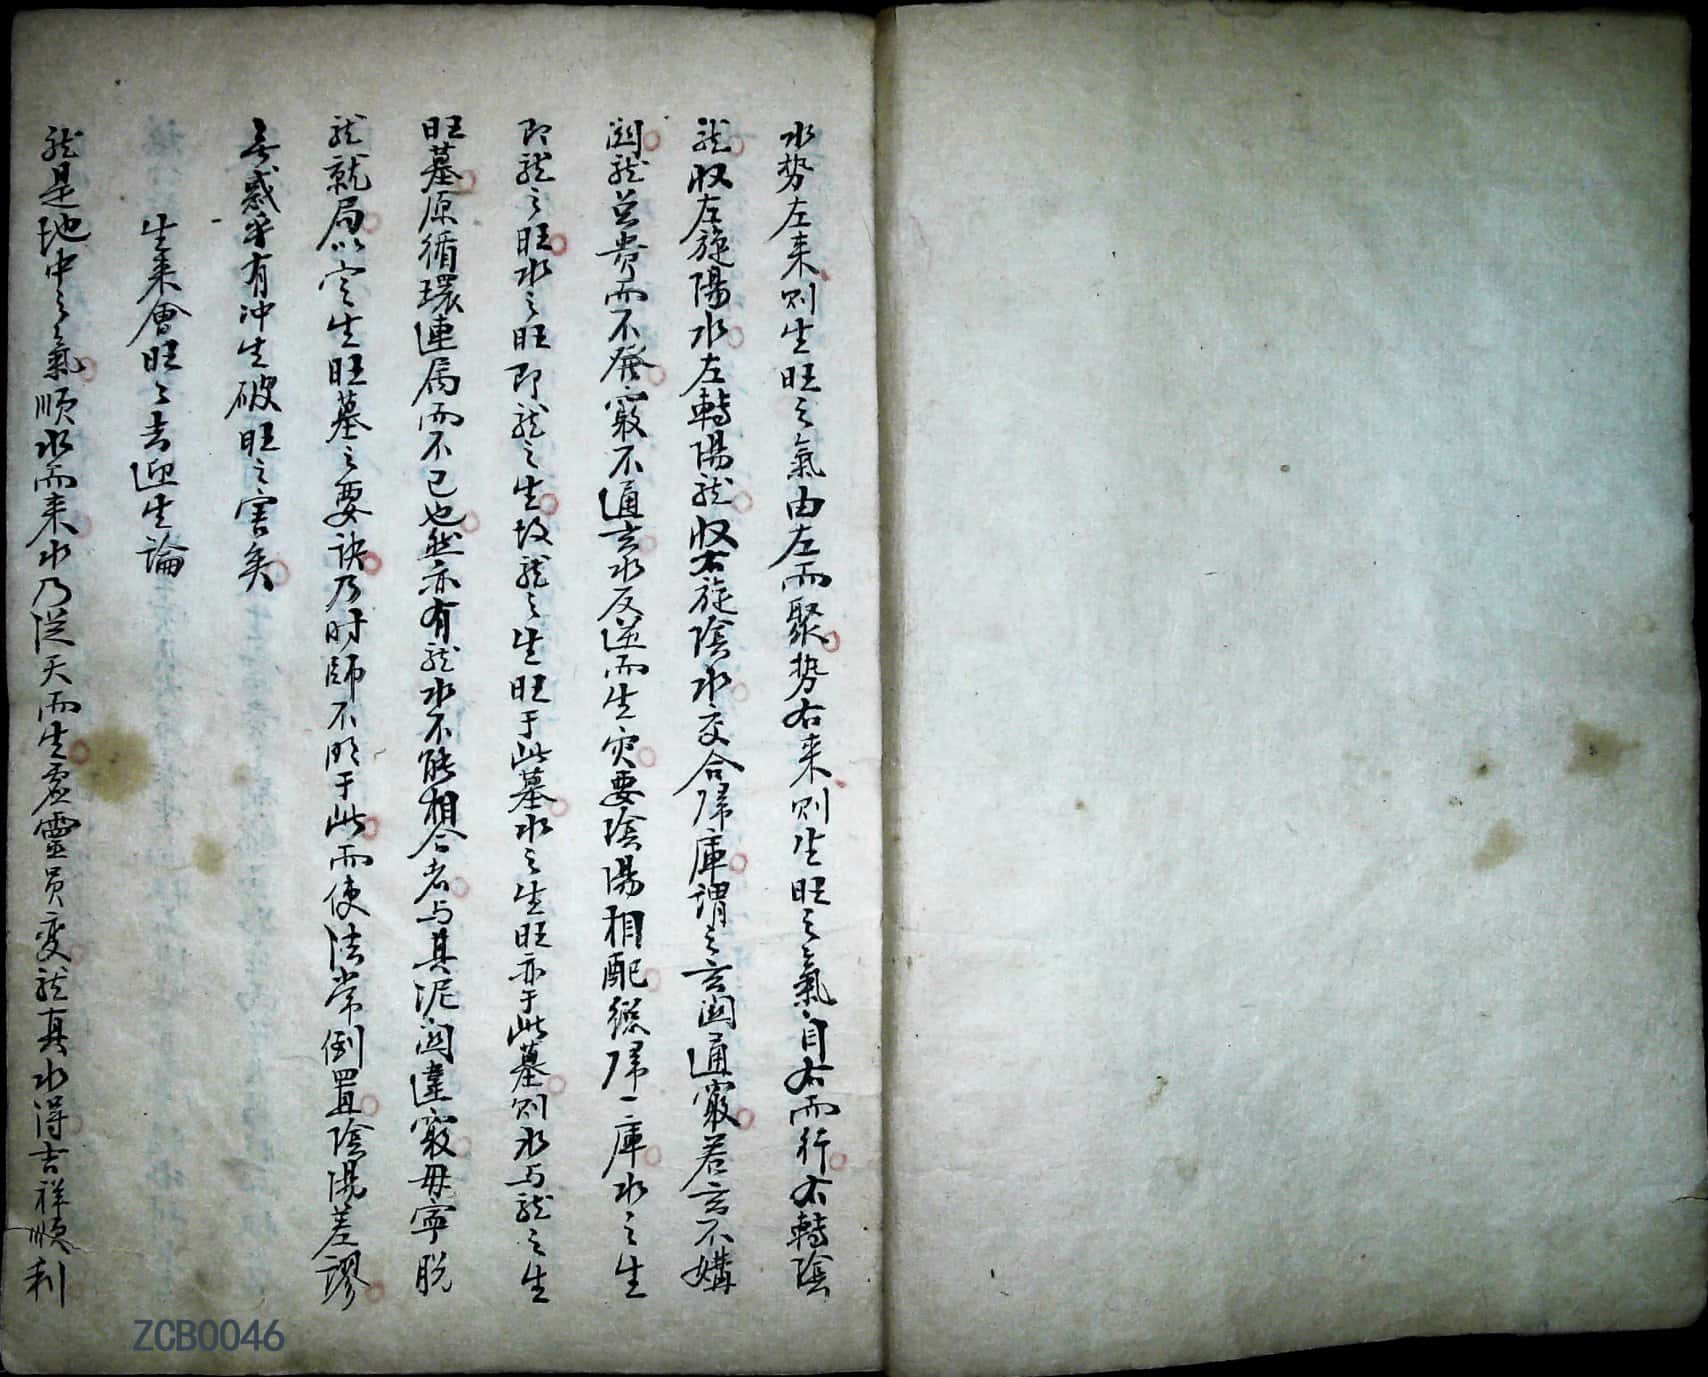 水势左来则生旺之氣由左而聚势右来则生旺之氣自右而行右轉陰
龙收左旋陽水左轉陽龙收右旋陰水交合歸庫謂之玄関通竅若玄不媾
関龙总貴而不發竅不通玄水反逆而生灾要陰陽相配緫歸一庫水之生
即龙之旺水之旺即龙之生故龙之生生旺于此墓水之生生旺亦于此墓则水与龙之生
旺墓原循環連属而不已也然亦有龙水不能相合者与其泥関違竅毋寧脱
龙就局以定生旺墓之要訣乃时師不明于此而使法常倒置陰陽差謬
无惑乎有冲生破旺之害矣
生来會旺旺去迎生論
龙是地中之氣順水而来水乃從天而生虚靈员变龙真水得吉祥順利
ZCB0046